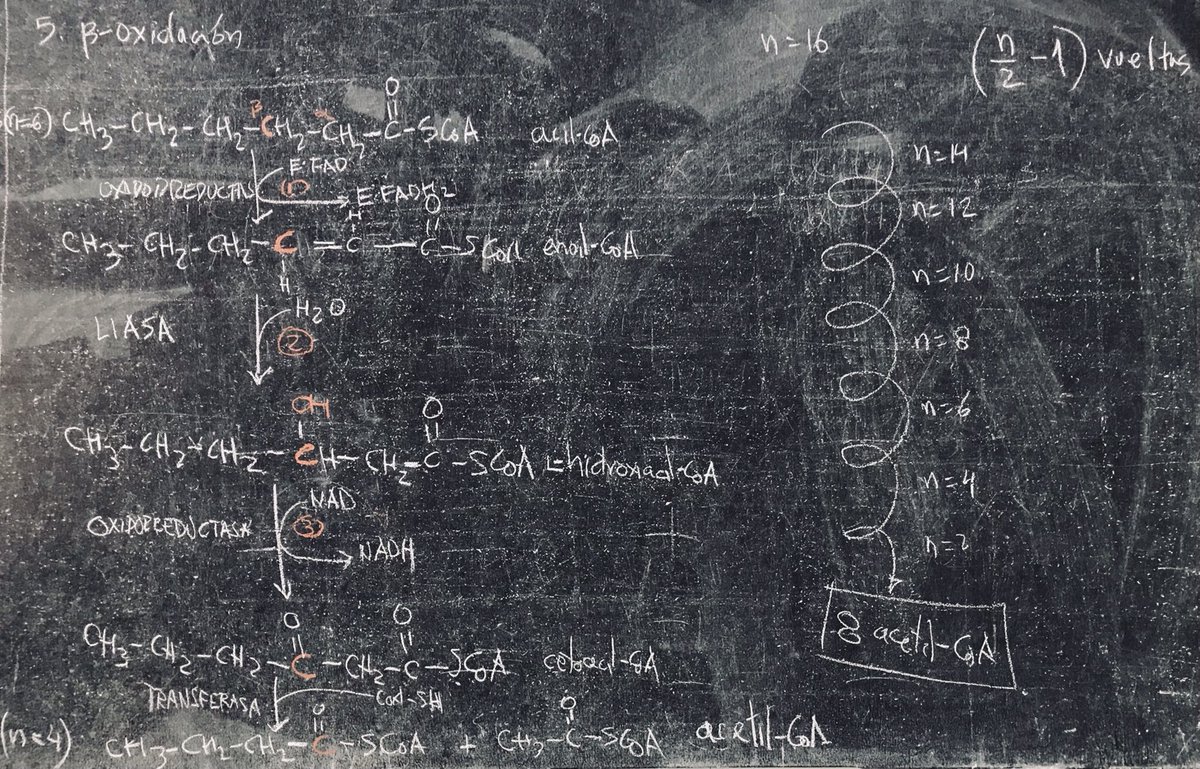 5. β-oxidación
n=16
(n/2 -1) vueltas
O
(n=6) CH3-CH2-CH2-CH2-CH2-C-SCoA acil-CoA
β α
E-FAD
OXIDORREDUCTASA (1) E-FADH2
H O
CH3-CH2-CH2-C=C-C-SCoA enoil-CoA
H
LIASA H2O
(2)
OH O
CH3-CH2-CH2-CH-CH2-C-SCoA L-hidroxiacil-CoA
NAD
OXIDORREDUCTASA (3)
NADH
O O
CH3-CH2-CH2-C-CH2-C-SCoA cetoacil-CoA
TRANSFERASA CoA-SH
O O
(n=4) CH3-CH2-CH2-C-SCoA + CH3-C-SCoA acetil-CoA
n=14
n=12
n=10
n=8
n=6
n=4
n=2
8 acetil-CoA